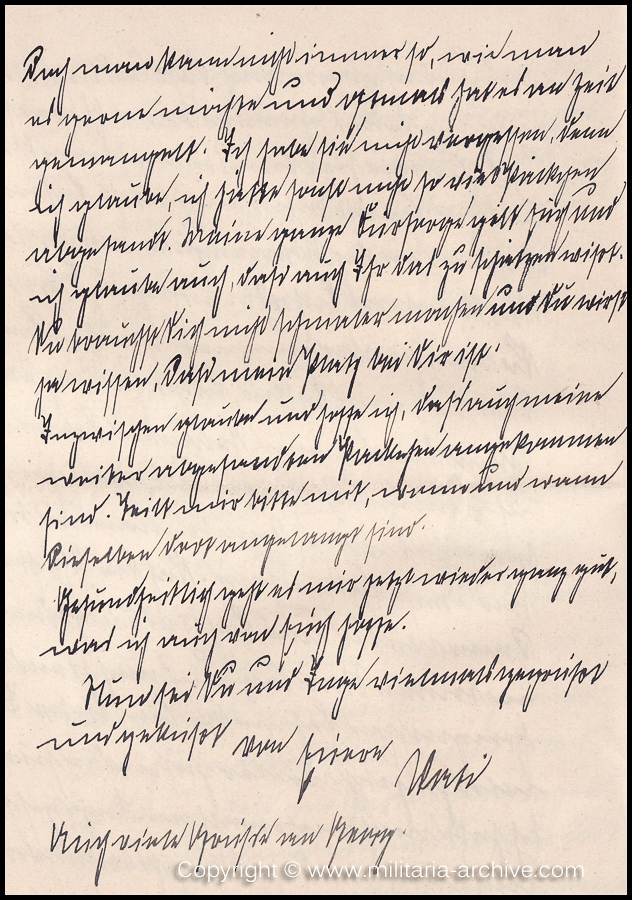 Doch man kann nicht immer so, wie man
es gerne möchte und oftmals hat es an Zeit
gemangelt. Ich habe sie nicht vergessen, denn
ich glaube, ich hätte sonst nicht so viel Päckchen
abgesandt. Meine ganze Fürsorge gilt Euch und
ich glaube auch, daß auch Ihr das zu schätzen wißt.
Du brauchst Dich nicht schmaler machen und Du wirst
ja wissen, daß mein Platz bei Dir ist!
Inzwischen glaube und hoffe ich, daß auch meine
weiter abgesandten Päckchen angekommen
sind. Teilt mir bitte mit, wenn und wann
dieselben dort angelangt sind.
Gesundheitlich geht es mir jetzt wieder ganz gut,
was ich auch von Euch hoffe.
Nun sei Du und Inge vielmals gegrüßt
und geküßt von Eurem
Vati
Auch viele Grüße an Georg.
Copyright © www.militaria-archive.com